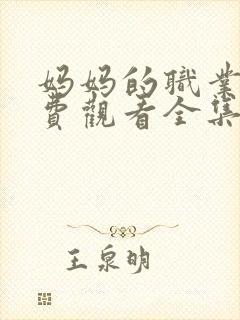 妈妈的職業
費觀看全集
王泉明